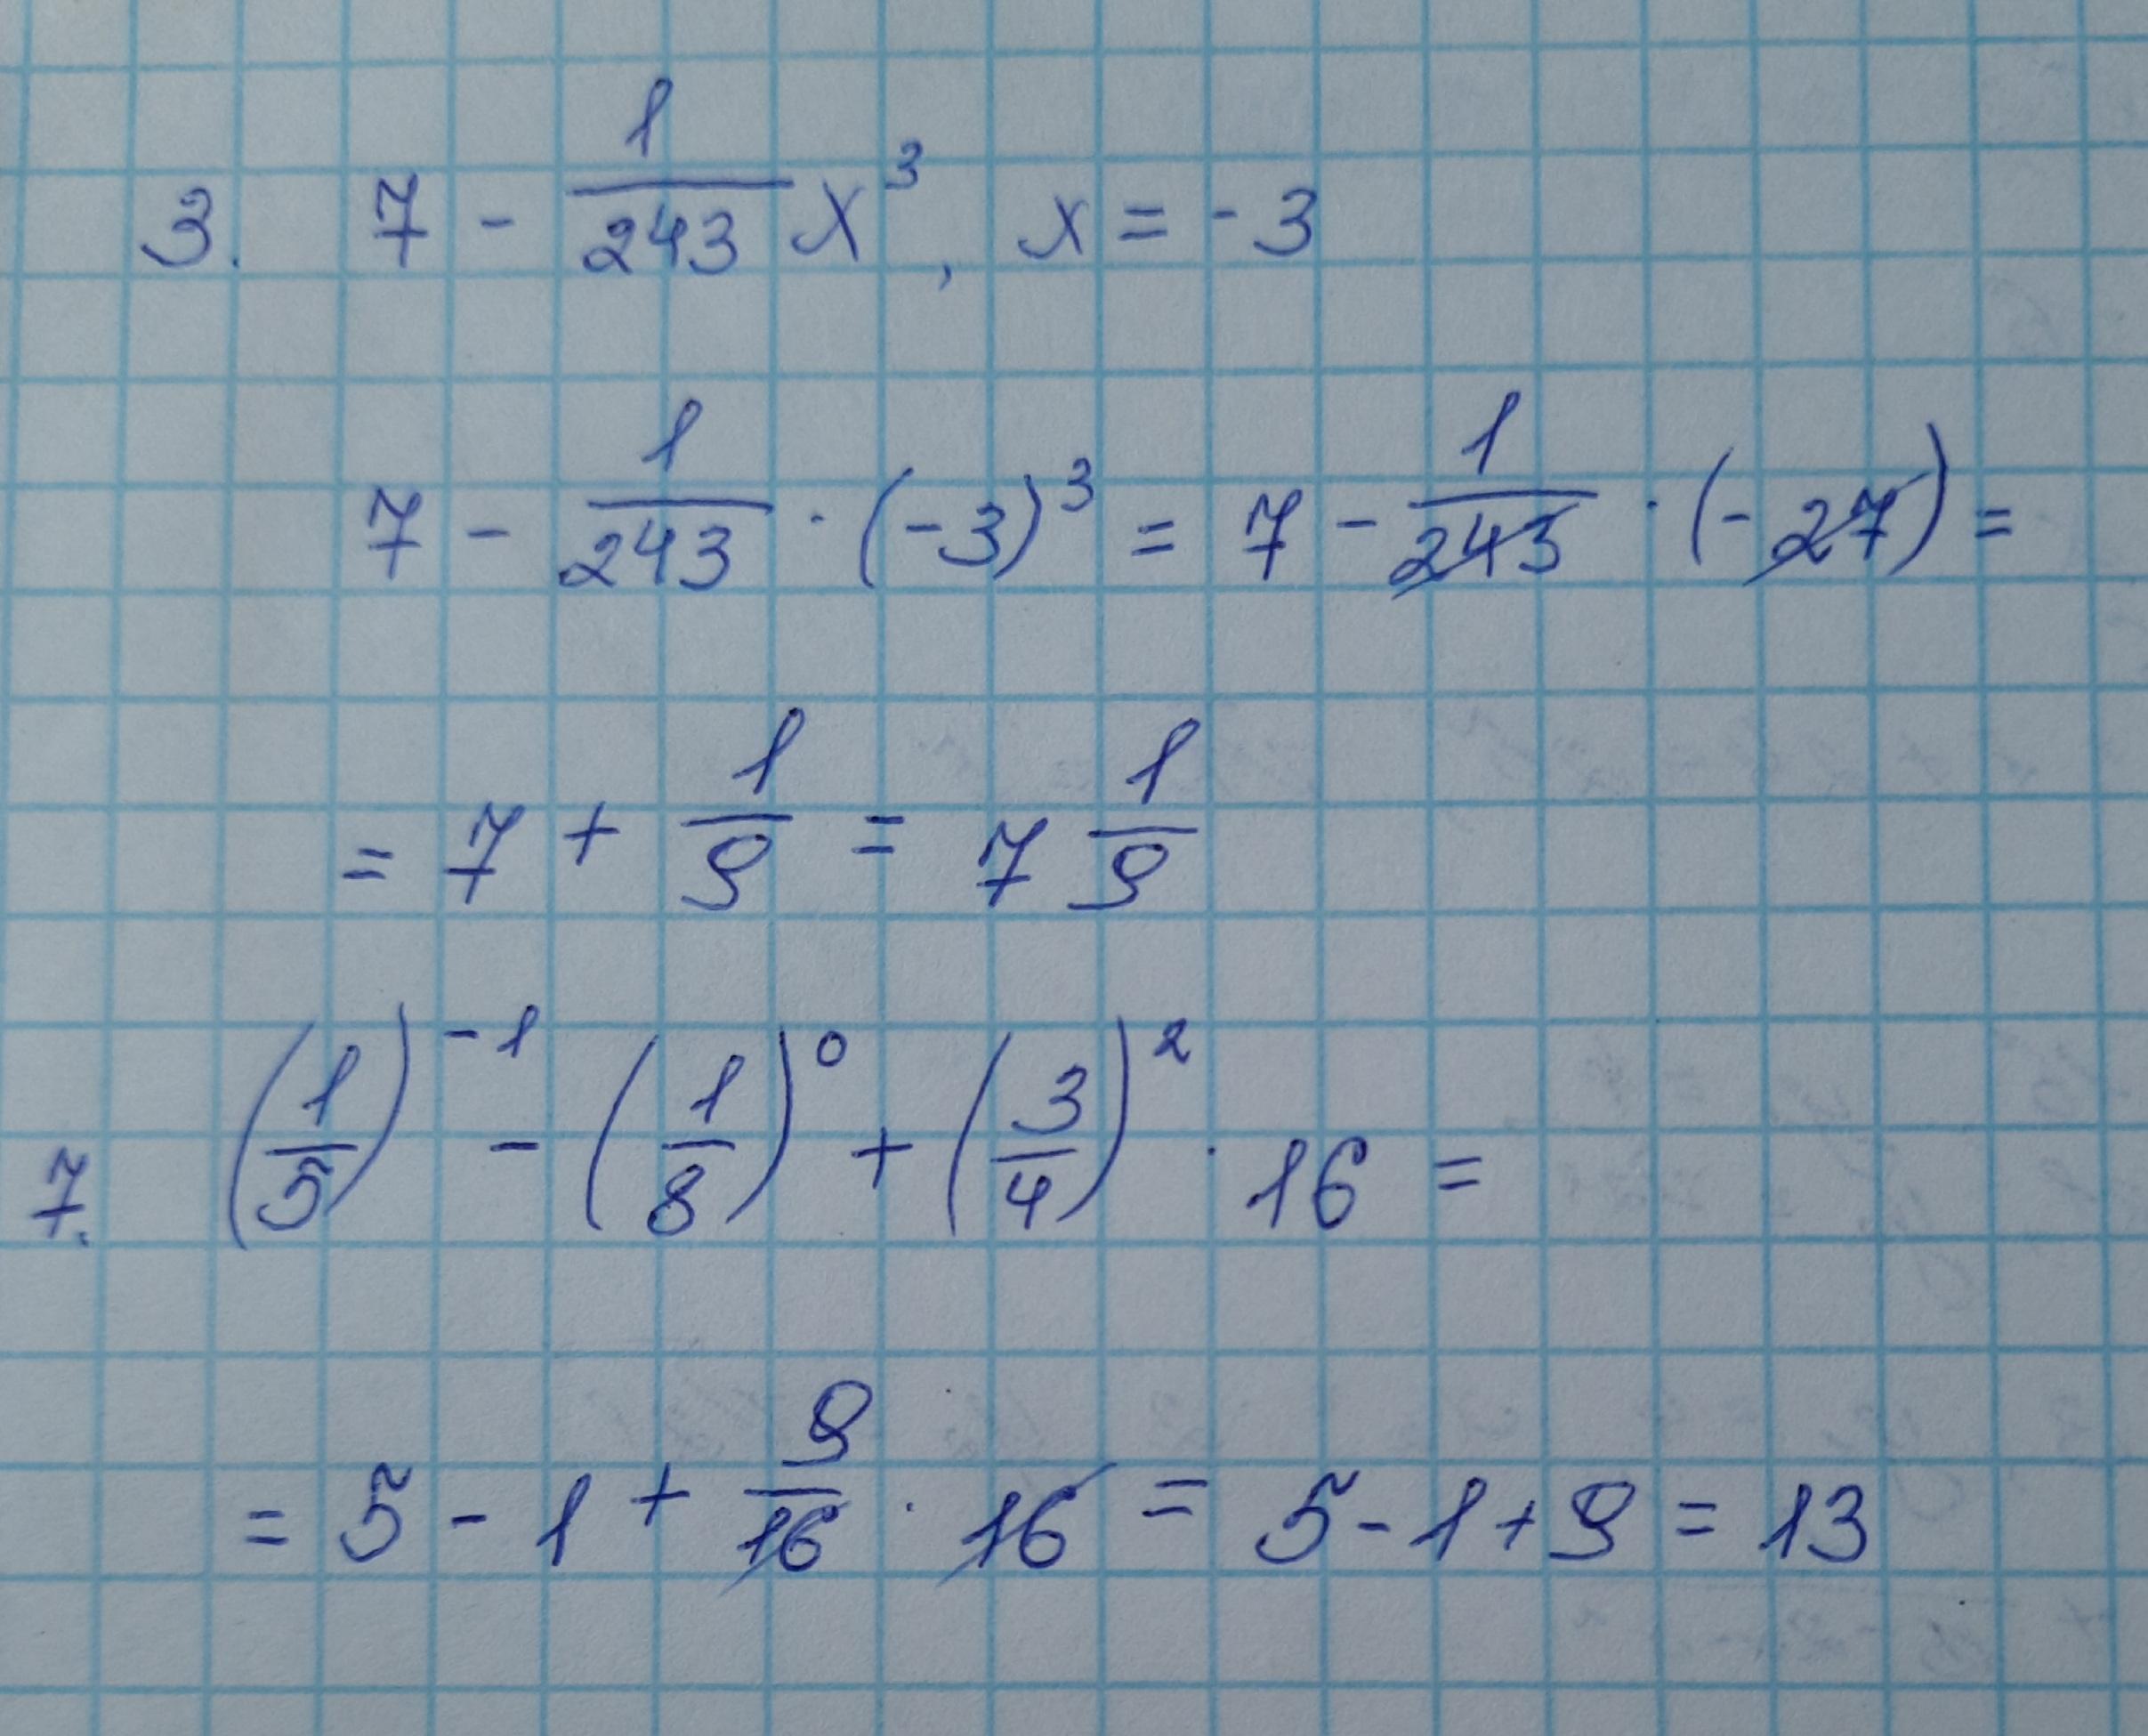 3. 7 - 1/243 x³, x = -3
7 - 1/243 · (-3)³ = 7 - 1/243 · (-27) =
= 7 + 1/9 = 7 1/9
7. (1/5)⁻¹ - (1/8)⁰ + (3/4)² · 16 =
= 5 - 1 + 9/16 · 16 = 5 - 1 + 9 = 13